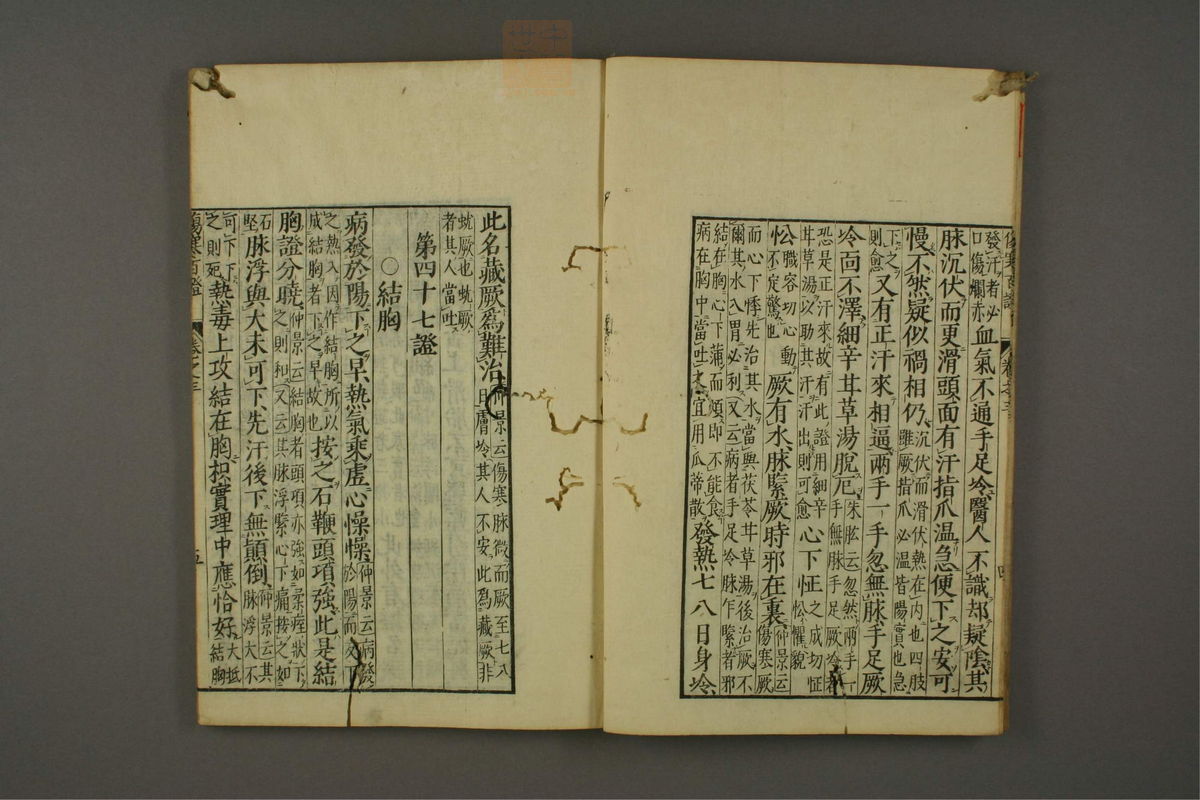 傷寒百證　卷之三　四
發汗者必
口傷爛赤
血氣不通手足冷醫人不識却疑陰其
脉沉伏而更滑頭面有汗指爪温急便下之安可
慢不然疑似禍相仍
沉伏而滑伏熱在内也四肢
雖厥指爪必温皆陽實也急
下之
則愈
又有正汗來相逼兩手一手忽無脉手足厥
冷面不澤細辛甘草湯脫厄
朱肱云忽然兩手一
手無脉手足厥冷者
恐是正汗來故有此證用細辛
甘草湯以助其汗汗出則可愈
心下怔
之成切怔
忪懼貌
忪
職容切心動
不定驚也
厥有水脉緊厥時邪在裏
仲景云
傷寒厥
而心下悸先治其水當與茯苓甘草湯後治厥不
爾其水入胃必利又云病者手足冷脉乍緊者邪
結在胸心下滿而煩即不能食
病在胸中當吐之宜用瓜蒂散
發熱七八日身冷
此名藏厥爲難治
仲景云傷寒脉微而厥至七八
日膚冷其人不安此爲藏厥非
蚘厥也蚘厥
者其人當吐
第四十七證
○結胸
病發於陽下之早熱氣乘虛心懆懆
仲景云病發
於陽而反下
之熱入因作結胸所以
成結胸者下之早故也
按之石鞕頭項強此是結
胸證分曉
仲景云結胸者頭項亦強如柔痓狀下
之則和又云其脉浮緊心下痛按之如
石
堅
脉浮與大未可下先汗後下無顛倒
仲景云其
脉浮大不
可下下
之則死
熱毒上攻結在胸枳實理中應恰好
大抵
結胸
傷寒百證　卷之三　五